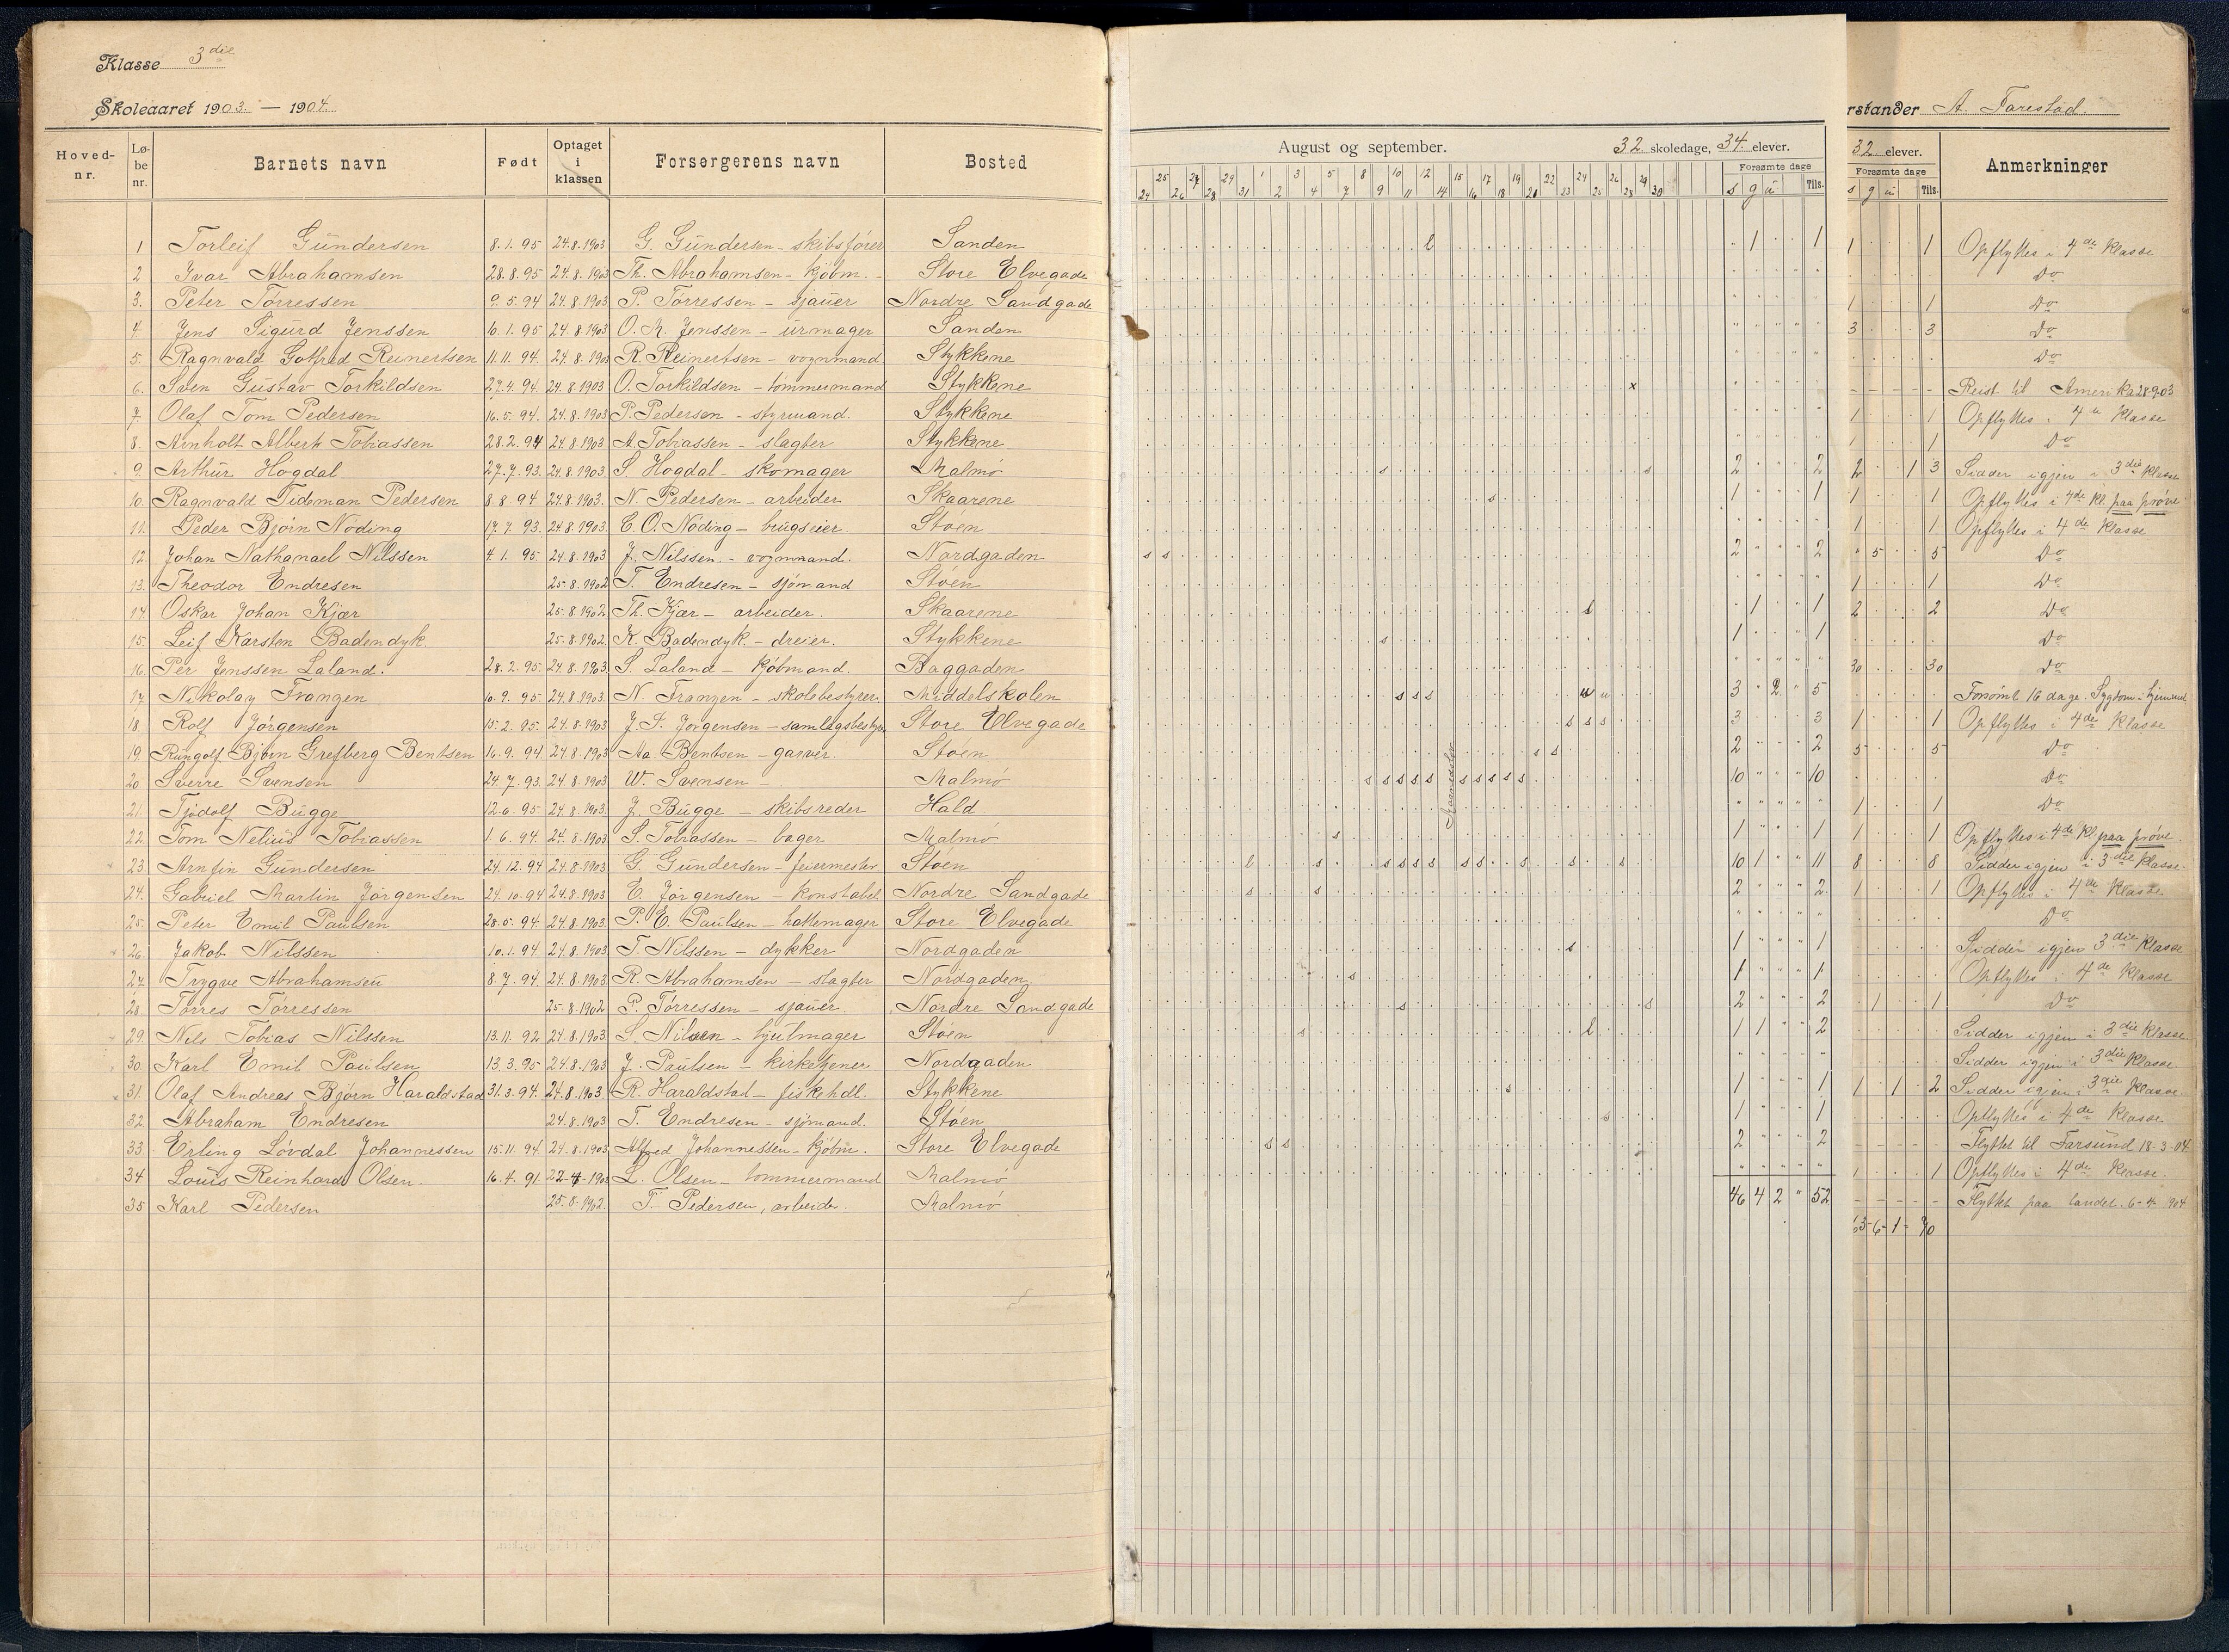 Klasse 3die
Skoleaaret 1903. — 1904.
rstander A. Farestad.
Hoved-nr. Løbe nr. Barnets navn Født Optaget i klassen Forsørgerens navn Bosted
August og september. 32 skoledage, 34 elever.
32 elever.
Forsømte dage
Forsømte dage
Anmerkninger
25 27 29 1 3 5 8 10 12 15 17 19 22 24 26 29
24 26 28 31 2 4 7 9 11 14 16 18 21 23 25 28 30
s g u Tils.
s g u Tils.
1 Torleif Gundersen 8.1.95 24.8.1903 G. Gundersen - skibsfører Sanden l 1 1 1 1 Opflyttes i 4de Klasse
2 Ivar Abrahamsen 28.8.95 24.8.1903 Th. Abrahamsen - kjøbm. Store Elvegade Do
3. Peter Tørressen 9.5.94 24.8.1903 P. Tørressen - sjauer Nordre Sandgade 1 1 Do
4. Jens Sigurd Jenssen 10.1.95 24.8.1903 O. M. Jenssen - urmager Sanden 3 3 Do
5. Ragnvald Gotfred Reinertsen 11.11.94. 24.8.1903 R. Reinertsen - vognmand. Stykkene Do
6. Sven Gustav Torkildsen 27.4.94 24.8.1903 O. Torkildsen - tømmermand Stykkene x - - - - - Reist til Amerika 28-9-03
7. Olaf Tom Pedersen 16.5.94. 24.8.1903 P. Pedersen - styrmand. Stykkene 1 1 Opflyttes i 4de Klasse
8. Arnholt Albert Tobiassen 28.2.94 24.8.1903 A. Tobiassen - slagter Stykkene 1 1 Do
9. Arthur Hogdal 27.7.93. 24.8.1903 S Hogdal - skomager Malmø s s 2 2 2 1 3 Sidder igjen i 3die Klasse
10. Ragnvald Tideman Pedersen 8.8 94 24.8.1903. N. Pedersen - arbeider Skaarene s 1 1 1 1 Opflyttes i 4de Kl. paa prøve
11. Peder Bjørn Nöding 17.7.93. 24.8.1903. E. O. Nöding - brugseier. Støen 1 1 Opflyttes i 4de Klasse
12. Johan Nathanael Nilssen 4.1.95. 24.8.1903 J. Nilssen - vognmand. Nordgaden s s 2 2 5 5 Do
13. Theodor Endresen 25.8.1902 T. Endresen - sjømand Støen 1 1 Do
14. Oskar Johan Kjær 25.8.1902. Th. Kjær - arbeider. Skaarene l 1 1 2 2 Do
15. Leif Karsten Badendyk. 25.8.1902. K. Badendyk - dreier. Stykkene s 1 1 Do
16. Per Jenssen Laland. 28.2.95. 24.8.1903. S. Laland - Kjøbmand. Baggaden 30 30 Do
17. Nikolay Franzen 10.9.95. 24.8.1903. N. Franzen - skolebestyrer. Middelskolen s s s u u 3 2 5 Forsømt 16 dage. Sygdom i hjemmet
18. Rolf Jørgensen 15.2.95. 24.8.1903 J. F. Jørgensen - samlagsbestyr. Store Elvegade s s s 3 3 1 1 Opflyttes i 4de Klasse
19. Rüngolf Bjørn Grefberg Bentsen 16.9.94 24.8.1903 Aa Bentsen - garver. Støen s s 2 2 5 5 Do
20 Sverre Svensen 24.7.93. 24.8.1903 W. Svensen - Malmø s s s s s s s s s s 10 10 Do
21. Tjodolf Bugge 12.6.95 24.8.1903. J. Bugge - skibsreder Hald 1 1 Do
22. Tom Nelius Tobiassen 1.6.94. 24.8.1903 S. Tobiassen - bager Malmø s 1 1 1 1 Opflyttes i 4de Kl. paa prøve
23. Arnfin Gundersen 24.12.94 24.8.1903 G. Gundersen - feiermester Støen l s s s s s s s s s s 10 1 11 8 8 Sidder igjen i 3die Klasse.
24. Gabriel Martin Jørgensen 24.10.94 24.8.1903 E. Jørgensen - Konstabel Nordre Sandgade s s 2 2. 1 1 Opflyttes i 4de Klasse
25. Peter Emil Paulsen 28.5.94 24.8.1903 P. E. Paulsen - hattemager Store Elvegade Do
26. Jakob Nilssen 10.1.94 24.8.1903 T. Nilssen - dykker Nordgaden s 1 1 Sidder igjen 3die Klasse
27. Trygve Abrahamsen 8.7.94 24.8.1903 R. Abrahamsen - slagter Nordgaden s 1 1 Opflyttes i 4de Klasse
28. Tørres Tørressen 25.8.1902 P. Tørressen - sjauer. Nordre Sandgade s s 2 2 1 1 Do
29. Nils Tobias Nilssen 13.11.92 24.8.1903. S. Nilsen - hjulmager Støen s l 1 1 2 Sidder igjen i 3die Klasse.
30. Karl Emil Paulsen 13.3.95 24.8.1903 J. Paulsen - kirketjener Nordgaden Sidder igjen i 3die Klasse
31. Olaf Andreas Bjørn Haraldstad 31.3.94. 24.8.1903 R. Haraldstad - fiskehdl. Stykkene s 1 1 1 1 2 Sidder igjen i 3die Klasse.
32. Abraham Endresen 24.8.1903 T. Endresen - sjømand. Støen s 1 1 Opflyttes i 4de Klasse
33. Erling Løvdal Johannessen 15.11.94 24.8.1903 Alfred Johannessen - kjøbm. Store Elvegade s s 2 2 - - - - Flyttet til Farsund 18-3-04
34 Louis Reinhard Olsen. 16.4.91 22-4-1903 L. Olsen - tømmermand Malmø 1 1 Opflyttes i 4de Klasse.
35 Karl Pedersen 25.8.1902. T. Pedersen, arbeider. Malmø 46 4 2 " 52 - - - - - Flyttet paa landet. 6-4-904
63-6-1- 70